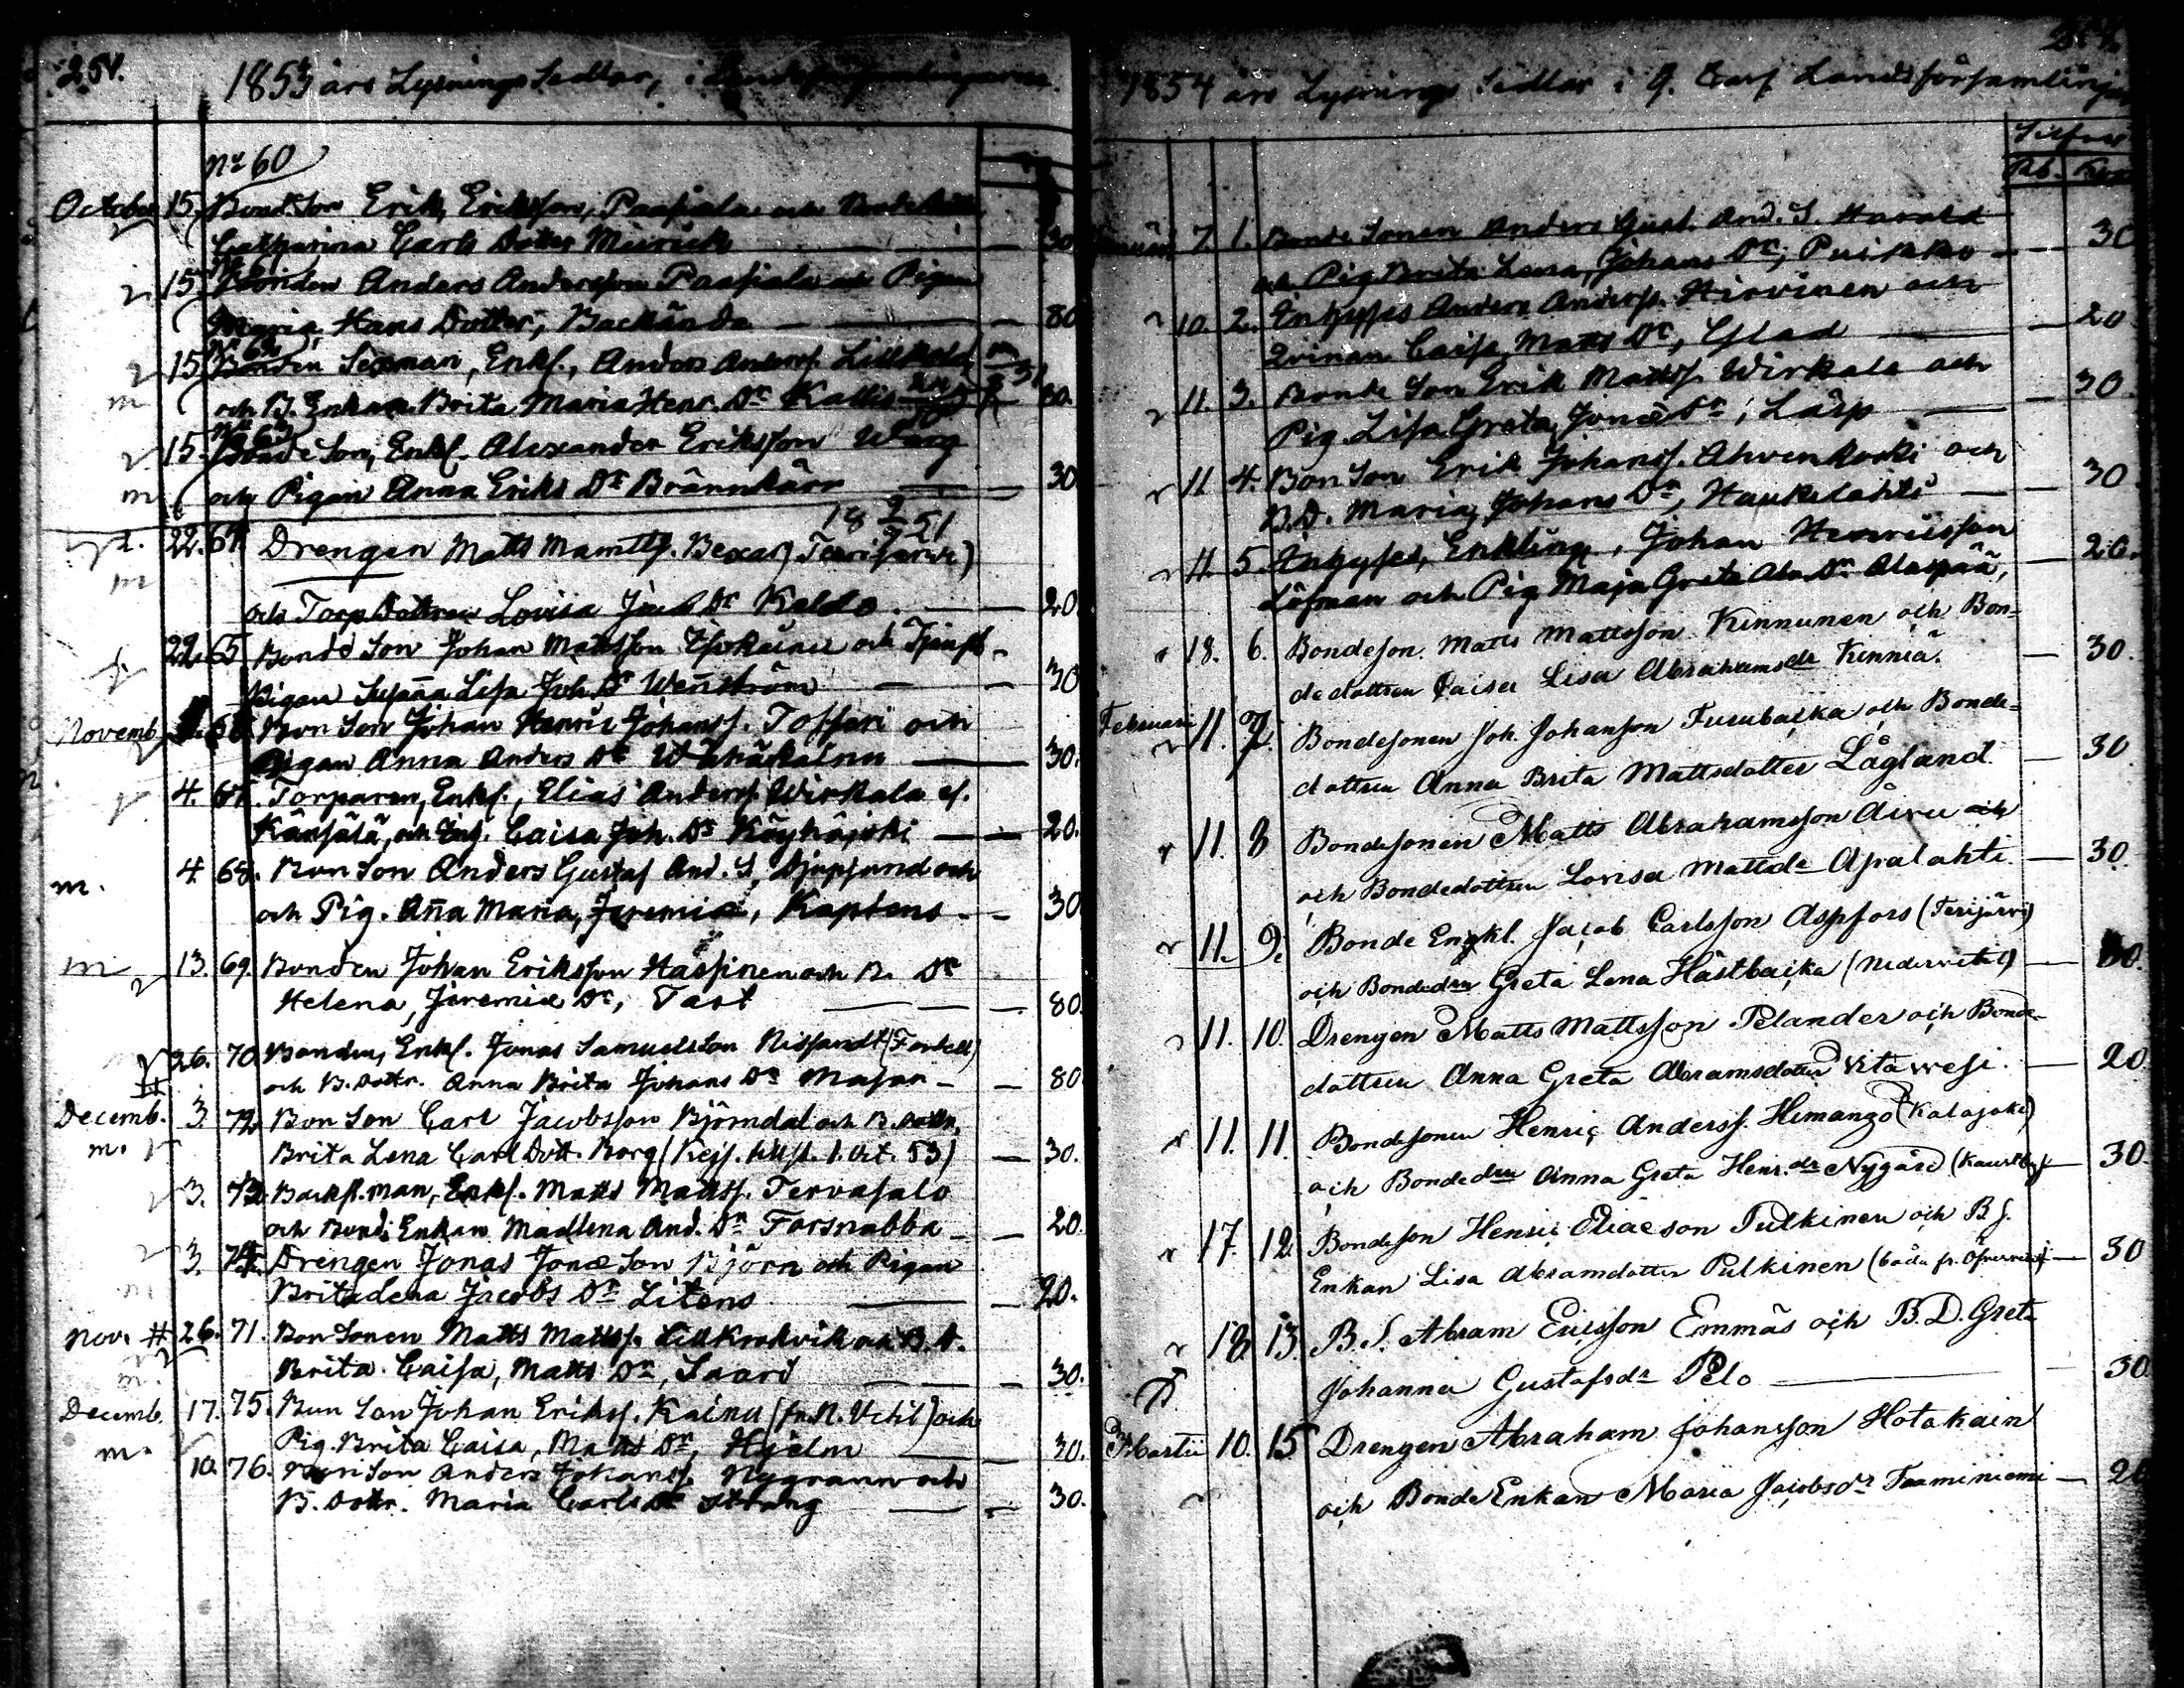 254.
1853 års Lysnings Sedlar, i Landsförsamlingarne.
No 60
October 15. Bond. Son Erik Eriksson, Paasiala och
Catharina Carls Dotter Miirick — 30
15 Bonden Anders Andersson Paasiala och Pigan
Maria, Hans Dotter, Backända — 80
15 Bonden Sexman, Enkl., Anders Anderss.
m och B. Enkan Brita Maria Henr. Dr Kallis — 80.
15. Bonde Son, Enkl. Alexander Eriksson Warg
m och Pigan Anna Eriks Dr Brännkärr — 30
22. 64. Drengen Matts Mattss. Bexar (Terrijärvi)
m
och Torp Dottren Lovisa Jac. Dr Kaldo. — 20
22. 65 Bonde Son Johan Mattsson och Tjenst
Pigan Susanna Lisa Joh. Dr Wennström — 30
Novemb. 66. Bon Son Johan Henric Johanss. Toffari och
Pigan Anna Anders Dr Wähäkainu — 30.
4. 67. Torparen, Enkl., Elias Anderss. Wirkala el.
Känsälä, och Caisa Joh. Dr Köyhäjoki — 20.
4. 68. Bon Son Anders Gustaf And. S. Djupsund och
m. och Pig. Anna Maria, Jeremiæ, Kaptens — 30
m 13. 69. Bonden Johan Eriksson Haapinen och B. Dr
Helena, Jeremiæ Dr, Tast — 80.
26. 70. Bonden, Enkl. Jonas Samuelsson Nissandt (Forball)
och B. Dottr. Anna Brita Johans Dr Masar — 80
Decemb. 3. 72. Bon Son Carl Jacobsson Björndal och B. Dottr.
m. Brita Lena Carl Dott. Borg (Kejs. tillst. 1. Oct. 53) — 30.
3. 73. Backst. man, Enkl. Matts Mattss. Tervasalo
och Bonde Enkan Madlena And. Dr Forsnabba — 20.
3. 74. Drengen Jonas Jonæ Son Björn och Pigan
m Brita Lena Jacobs Dr Litens — 20.
Nov. # 26. 71. Bon Sonen Matts Mattss. Lillkrokvik och B. D.
m. Brita Caisa, Matts Dr, Saari — 30.
Decemb. 17. 75. Bon Son Johan Erikss. Kainu (fr. N. Vetil) och
m. Pig. Brita Caisa, Matts Dr, Hjelm — 30.
10. 76. Bon Son Anders Johanss. Nygrann och
B. Dottr. Maria Carls Dr Strang — 30.
1854 års Lysnings Sedlar i G. Carl. Landsförsamlingar
Silfver
Rb. Kop
Januari 7. 1. Bonde Sonen Anders Gust. And. S. Harald
och Pig Brita Lena, Johans Dr, Puikko — 30
10. 2. Inhyses Anders Anderss. Hirvinen och
Qvinan Caisa, Matts Dr, Glad — 20
11. 3. Bonde Son Erik Mattss. Wirkala och
Pig. Lisa Greta, Jonæ Dr, Läsp — 30.
11 4. Bon Son Erik Johanss. Ahvenkoski och
B. D. Maria, Johans Dr, Haukilahti — 30
11. 5. Inhyses, Enkling, Johan Henricsson
Löfman och Pig Maja Greta Abr. Dr Alaspää, — 20.
18. 6. Bondeson Matts Mattsson Kinnunen och Bon-
dedottren Caisa Lisa Abrahamsdr Kinnia. — 30.
Februari 11. 7. Bondesonen Joh. Johanson Furubacka och Bonde-
dottren Anna Brita Mattsdotter Lågland. — 30.
11. 8 Bondesonen Matts Abrahamsson Aivu och
och Bondedottren Lovisa Mattsdr Apalahti. — 30.
11. 9. Bonde Enkl. Jacob Carlsson Aspfors (Terijärvi)
och Bondedrn Greta Lena Hästbacka (Nedervetil) — 80.
11. 10. Drengen Matts Mattsson Pelander och Bonde-
dottren Anna Greta Abramsdotter Vitavesi. — 20.
11. 11. Bondesonen Henric Anderss. Himango (Kalajoki)
och Bondedrn Anna Greta Henr.dr Nygård (Kaustby) — 30.
17. 12. Bondeson Henric Eliæson Pulkinen och B S.
Enkan Lisa Abramdotter Pulkinen (båda fr. Öfvervetil) — 30
18 13. B. S. Abram Ericsson Emmäs och B. D. Greta
Johanna Gustafsdr Pelo — 30.
Martii 10. 15 Drengen Abraham Johansson Hotakain
och Bonde Enkan Maria Jacobsdr Taaminiemi — 20